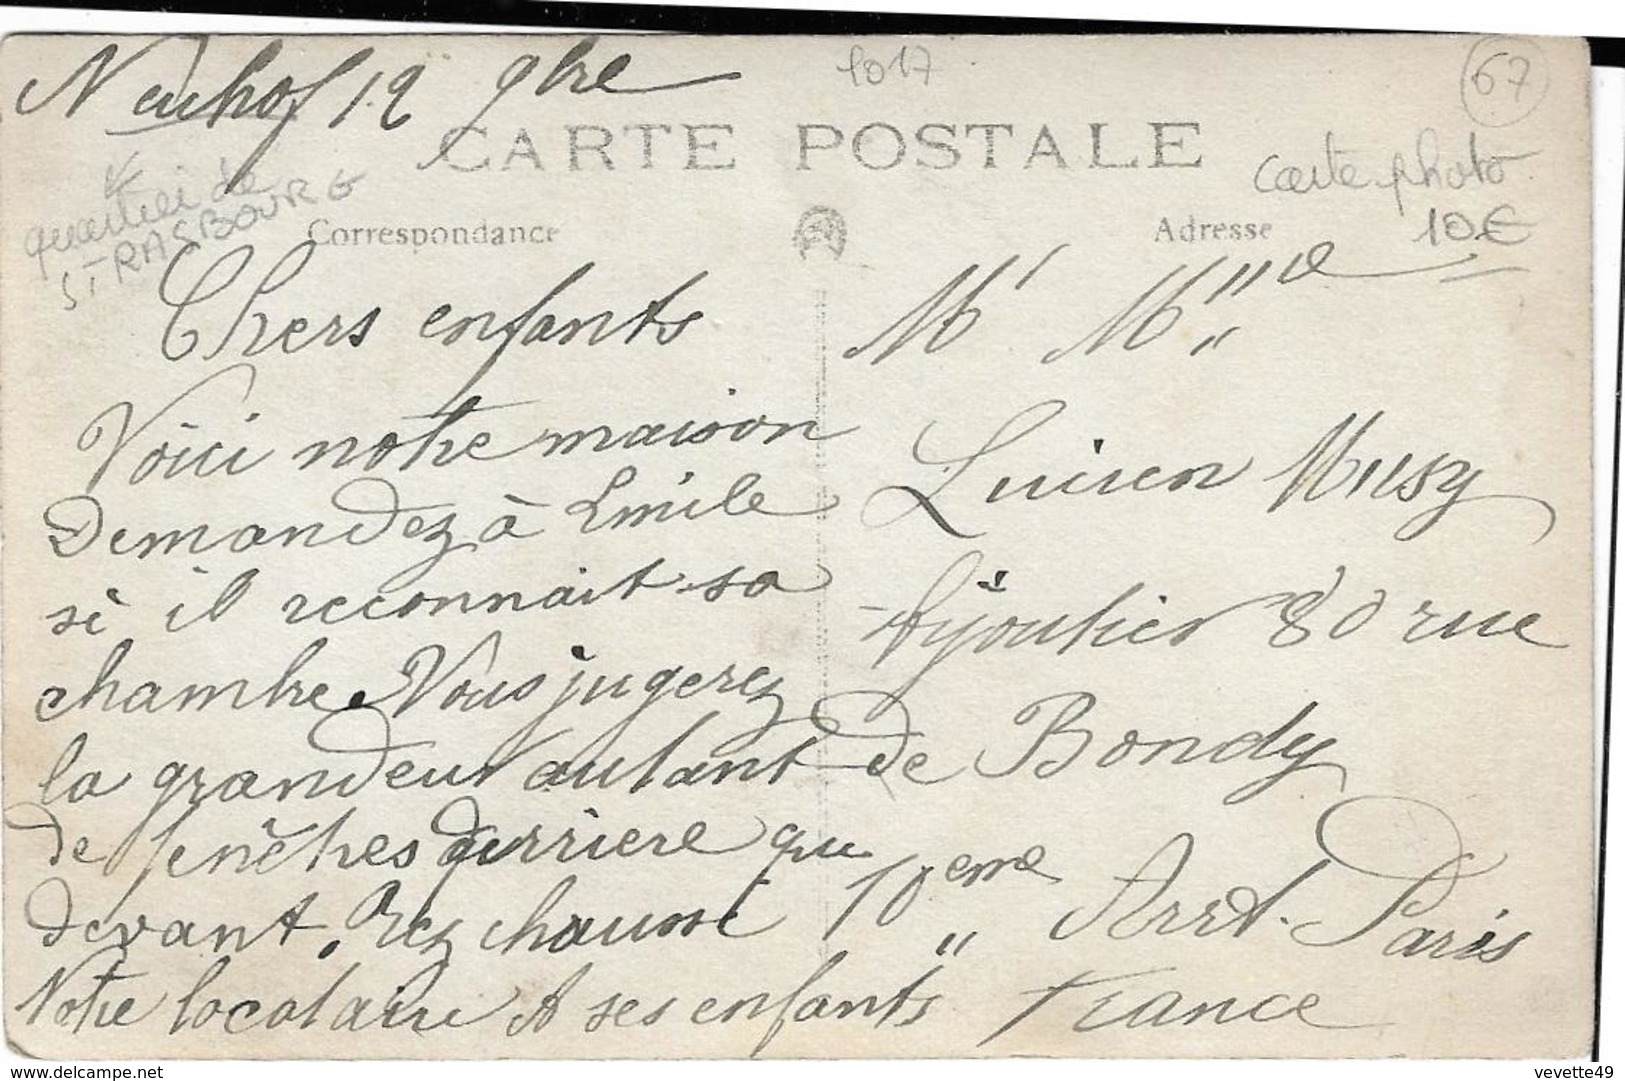 Neuhof 12 9bre
1017
67
CARTE POSTALE
carte photo
10€
quartier de
STRASBOURG
Correspondance
Adresse
Chers enfants
Voici notre maison
Demandez à Emile
si il reconnait sa
chambre. Vous jugerez
la grandeur autant
de fenêtres derriere que
devant. Rez chaussé
Notre locataire & ses enfants
Mr Mme
Lucien Musy
Bijoutier 80 rue
de Bondy
10eme Arrt. Paris
France
delcampe.net
vevette49